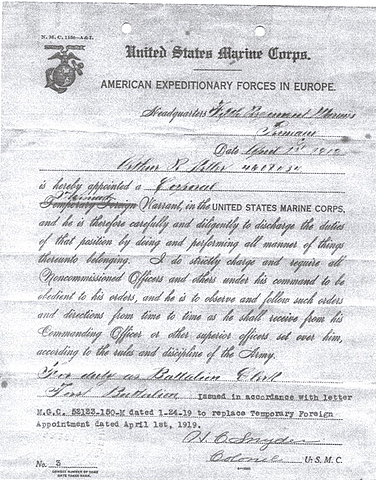 N. M. C. 1150—A-&-I.
United States Marine Corps.
AMERICAN EXPEDITIONARY FORCES IN EUROPE.
Headquarters Fifth Regiment Marines
Germany
Date April 1st 1919
Arthur R.
is hereby appointed a Corporal
Temporary Foreign Warrant, in the UNITED STATES MARINE CORPS,
and he is therefore carefully and diligently to discharge the duties
of that position by doing and performing all manner of things
thereunto belonging. I do strictly charge and require all
Noncommissioned Officers and others under his command to be
obedient to his orders, and he is to observe and follow such orders
and directions from time to time as he shall receive from his
Commanding Officer or other superior officers set over him,
according to the rules and discipline of the Army.
For duty as Battalion Clerk
First Battalion Issued in accordance with letter
M.G.C. 52123-150-M dated 1-24-19 to replace Temporary Foreign
Appointment dated April 1st, 1919.
H. C. Snyder
Colonel U. S. M. C.
No. 3